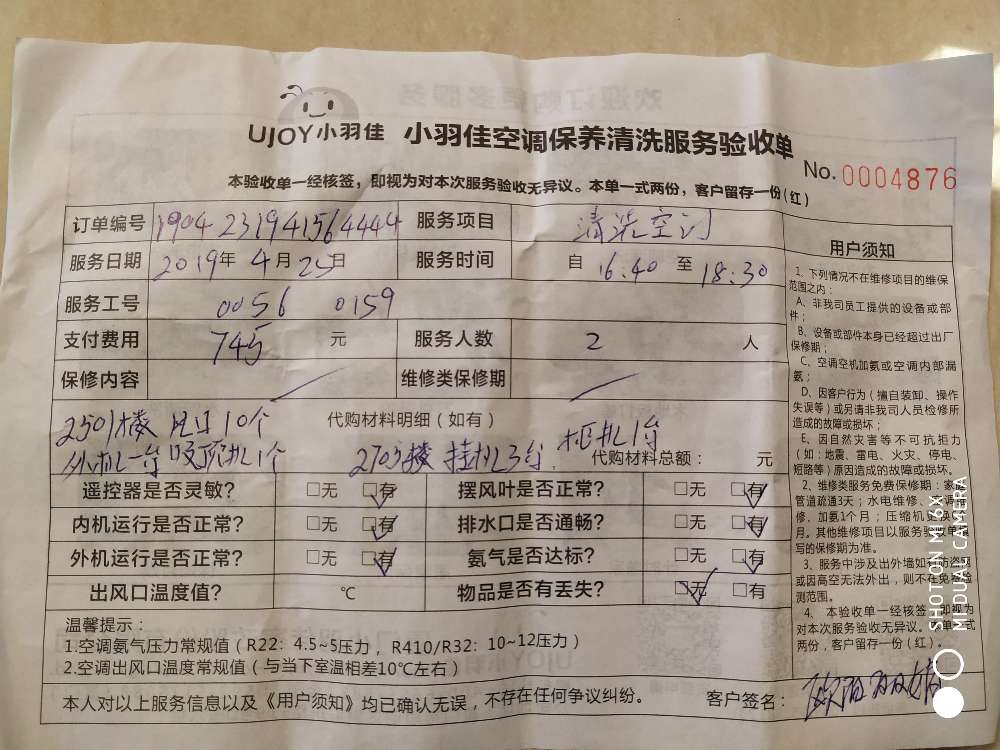 UJOY小羽佳 小羽佳空调保养清洗服务验收单
No.0004876
本验收单一经核签，即视为对本次服务验收无异议。本单一式两份，客户留存一份(红)
订单编号 1904231941564444 服务项目 清洗空调
服务日期 2019年4月25日 服务时间 自16:40至18:30
服务工号 0056 0159
支付费用 745元 服务人数 2人
保修内容 维修类保修期
代购材料明细（如有）
2501楼 风口10个
外机一台 吸顶机1个 2703楼 挂机3台 柜机1台
代购材料总额： 元
遥控器是否灵敏？ □无 □有 摆风叶是否正常？ □无 □有
内机运行是否正常？ □无 □有 排水口是否通畅？ □无 □有
外机运行是否正常？ □无 □有 氨气是否达标？ □无 □有
出风口温度值？ ℃ 物品是否有丢失？ □无 □有
温馨提示：
1.空调氨气压力常规值（R22：4.5~5压力，R410/R32：10~12压力）
2.空调出风口温度常规值（与当下室温相差10℃左右）
本人对以上服务信息以及《用户须知》均已确认无误，不存在任何争议纠纷。 客户签名：
用户须知
1、下列情况不在维修项目的维保
范围之内：
A、非我司员工提供的设备或部
件；
B、设备或部件本身已经超过出厂
保修期；
C、空调空机加氨或空调内部漏
氨；
D、因客户行为（擅自装卸、操作
失误等）或另请非我司人员检修所
造成的故障或损坏；
E、因自然灾害等不可抗拒力
（如：地震、雷电、火灾、停电、
短路等）原因造成的故障或损坏。
2、维修类服务免费保修期：家庭
管道疏通3天；水电维修、空调维
修、加氨1个月；压缩机更换
月。其他维修项目以服务验收单填
写的保修期为准。
3、服务中涉及出外墙如有防盗网
或因高空无法外出，则不在免费检
测范围。
4、本验收单一经核签，即视为
对本次服务验收无异议。本单一式
两份，客户留存一份（红）。
SHOT ON MI 6X
MI DUAL CAMERA